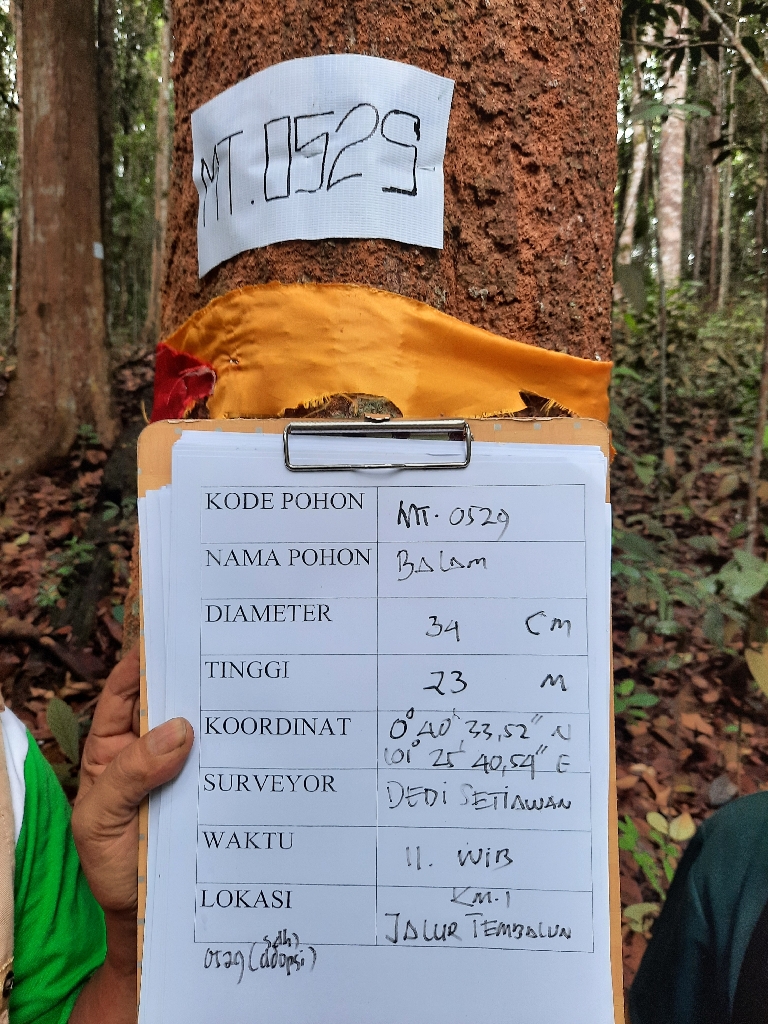 MT.0529
KODE POHON MT. 0529
NAMA POHON BALAM
DIAMETER 34 Cm
TINGGI 23 M
KOORDINAT 0° 40' 33,52" N
101° 25' 40,54" E
SURVEYOR DEDI SETIAWAN
WAKTU 11. WIB
LOKASI KM.1
JALUR TEMBALUN
0529 (sdh diadopsi)